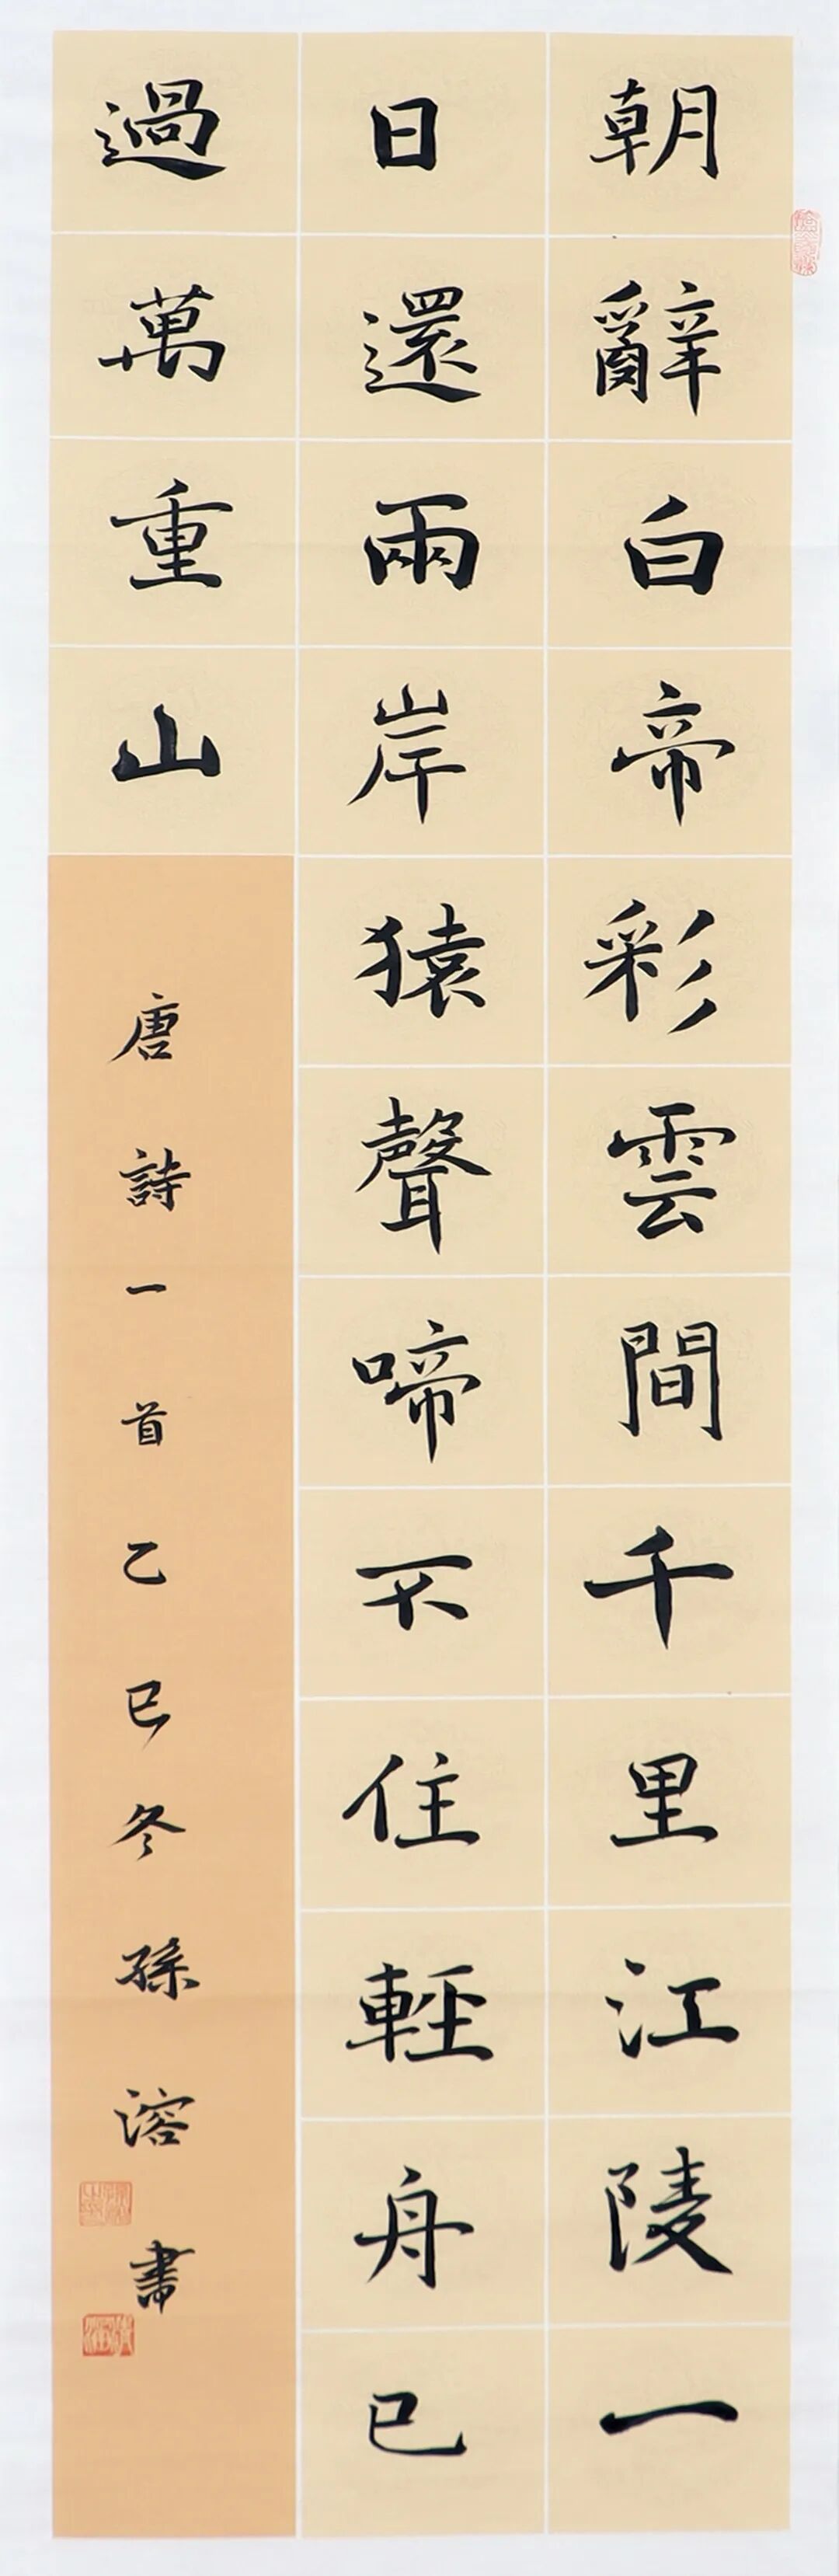 朝辭白帝彩雲間千里江陵一
日還兩岸猿聲啼不住輕舟已
過萬重山
唐詩一首乙巳冬孫溶書